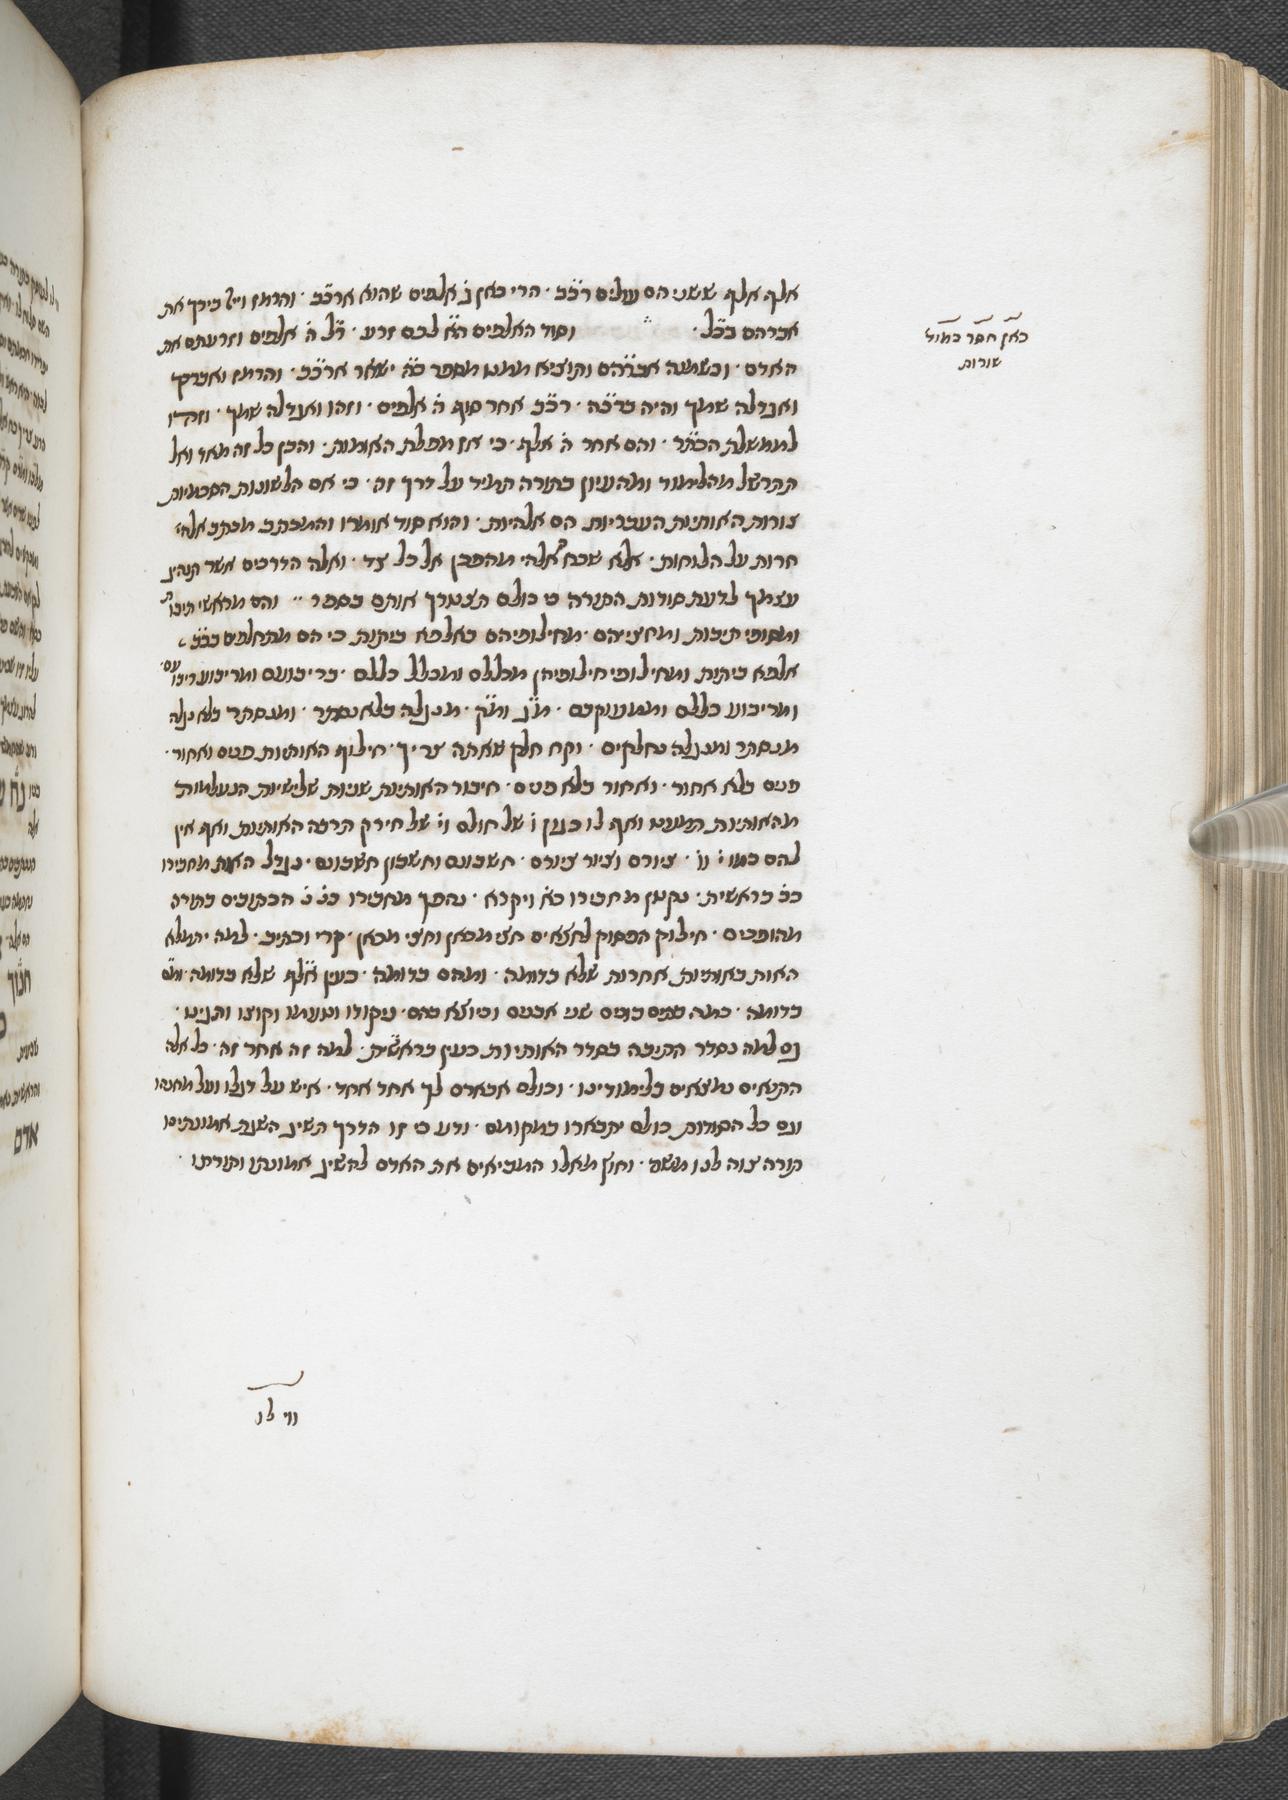 אלף אלף ששני הם עולים רׄבׄבׄ · הרי כאן גׄ אלפים שהוא ארׄבׄבׄ · והרמז וייי בירך את
אברהם בכׄל · וסוד האלפים הׄאׄ לכם זרע · רׄלׄ הׄ אלפים וזרעתם את
האדם · וכשמנה אברהם ותוציא ממנו מספר כׄהׄ ישאר ארׄבׄבׄ · והרמז ואברכך
ואגדלה שמך והיה ברׄכׄהׄ · רׄכׄבׄ אחר סוף הׄ אלפים · וזהו ואגדלה שמך
לממשלת הכתר · והם אחר הׄ אלף · כי אז מפלת האומות · והבן כל זה מאד ואל
תתרשל מהלימוד ומהעיון בתורה תמיד על דרך זה · כי אם הלשונות הסכמיות
צורות האותיות העבריות הם אלהיות · והוא סוד אומרו והמכתב מכתב אלהי׳
חרות על הלוחות · אלא שכח אלהי מהפכן אל כל צד · ואלה הדרכים אשר תנהיג
עצמך לדעת סודות התורה כי כולם תצטרך אותם בספר ·· והם מראשי תיבות
ומסופי תיבות ומחצייהם · מחילופיהם באלפא ביתות כי הם מתחלפים בכׄבׄ
אלפא ביתות ומחילופי חילופיהן מכללם ומכלל כללם · מריבועם ומריבוע ריבועם ·
ומריבוע כללם ומממעוקבם · מׄגׄ ומׄקׄ · מנגלה בלא נסתר · ומנסתר בלא נגלה
מנסתר ומנגלה נחלקים · וקח חלק שאתה צריך · חילוף האותיות פנים ואחור ·
פנים בלא אחור · ואחור בלא פנים · חיבור האותיות שניות שלישיות הנעלמות
מהאותיות המעט ואף לו כגון ו׳ של חולם וי׳ של חירק תרבה האותיות ואף אין
להם כמו י׳ וו׳ · ציורם וציור ציורם · חשבונם וחשבון חשבונם · גודל האות מחבירו
כבׄ בראשית · קטן מחבירו כאׄ ויקרא · נהפך מחבירו כנׄ נׄ הכתובים בתורה
מהופכים · חילוק הפסוק לחצאים חצי מכאן וחצי מכאן · קרי וכתיב · למה ימלא
האות באותיות אחרות שלא בדומה · ומהם בדומה · כעין אׄלׄףׄ שלא בדומה ומׄםׄ
בדומה · כמה בתים בונים שני אבנים וכיוצא בהם · ניקודו וטעמו וקוצו ותגיו ·
גם למה נסדר התיבה בסדר האותיות כעין בראשית · למה זה אחר זה · כל אלה
התנאים נמצאים בלימודינו · וכולם אבארם לך אחד אחד · איש על דגלו ועל מחנהו
ועם כל הסודות כולם יתבארו במקומם · ודע כי זו הדרך תשיג השגת אמונתינו
תורה צוה לנו משה · וחוץ מאלו המביאים את האדם להשיג אמונתו ותורתו ·
כאן חסר כמו ל׳
שורות
ויי לו